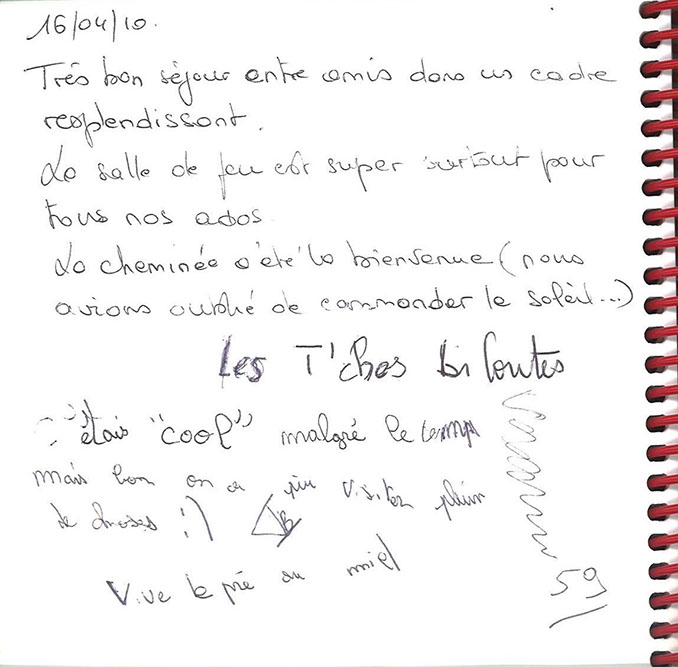 16/04/10.
Très bon séjour entre amis dans un cadre
resplendissant.
La salle de jeu est super surtout pour
tous nos ados
La cheminée a été la bienvenue (nous
avions oublié de commander le soleil...)
Les T'ches bi loutes
c'étais "cool" malgré le temps
mais bon on a pu visiter plein
de choses :')
Vive le pré au miel
59